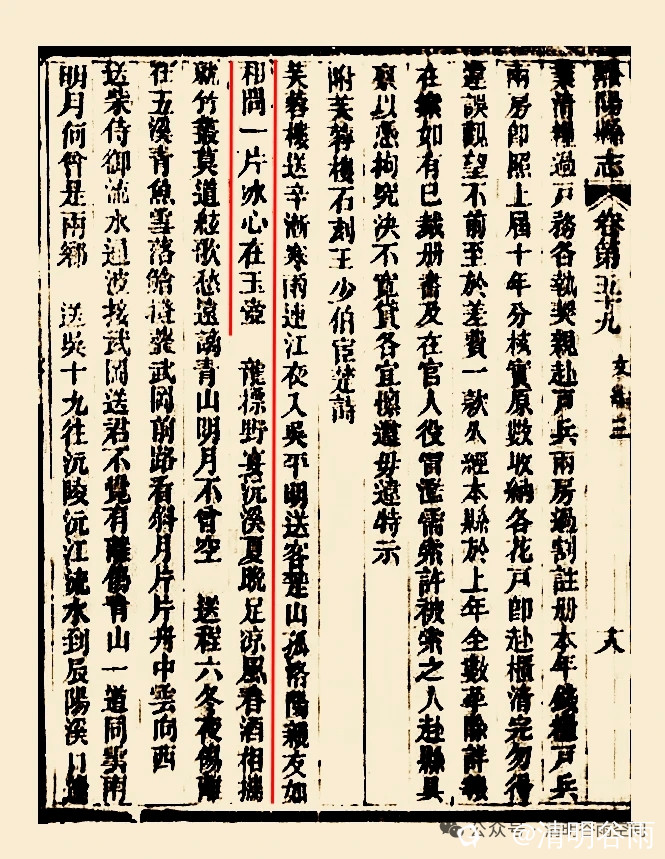 黔陽縣志 卷第五十九
業清糧過戶務各執契親赴戶兵兩房過割註册本年錢糧戶兵
兩房即照上屆十年分核實原數收納各花戶即赴櫃清完勿得
遲誤觀望不前至於差費一款久經本縣於上年全數革除詳
在案如有已裁册書及在官人役冒濫需索許被索之人赴縣具
稟以憑拘究決不寬貸各宜懍遵毋違特示
附芙蓉樓石刻王少伯宦楚詩
芙蓉樓送辛漸寒雨連江夜入吳平明送客楚山孤洛陽親友如
相問一片冰心在玉壺　龍標野宴沅溪夏晚足涼風春酒相攜
就竹叢莫道絃歌愁遠謫青山明月不曾空　送程六冬夜傷離
在五溪青魚雪落鱠橙虀武岡前路看斜月片片舟中雲向西
送柴侍御流水通波接武岡送君不覺有離傷青山一道同雲雨
明月何曾是兩鄉　送吳十九往沅陵沅江流水到辰陽溪口逢
公众号·清明谷雨空间
@清明谷雨